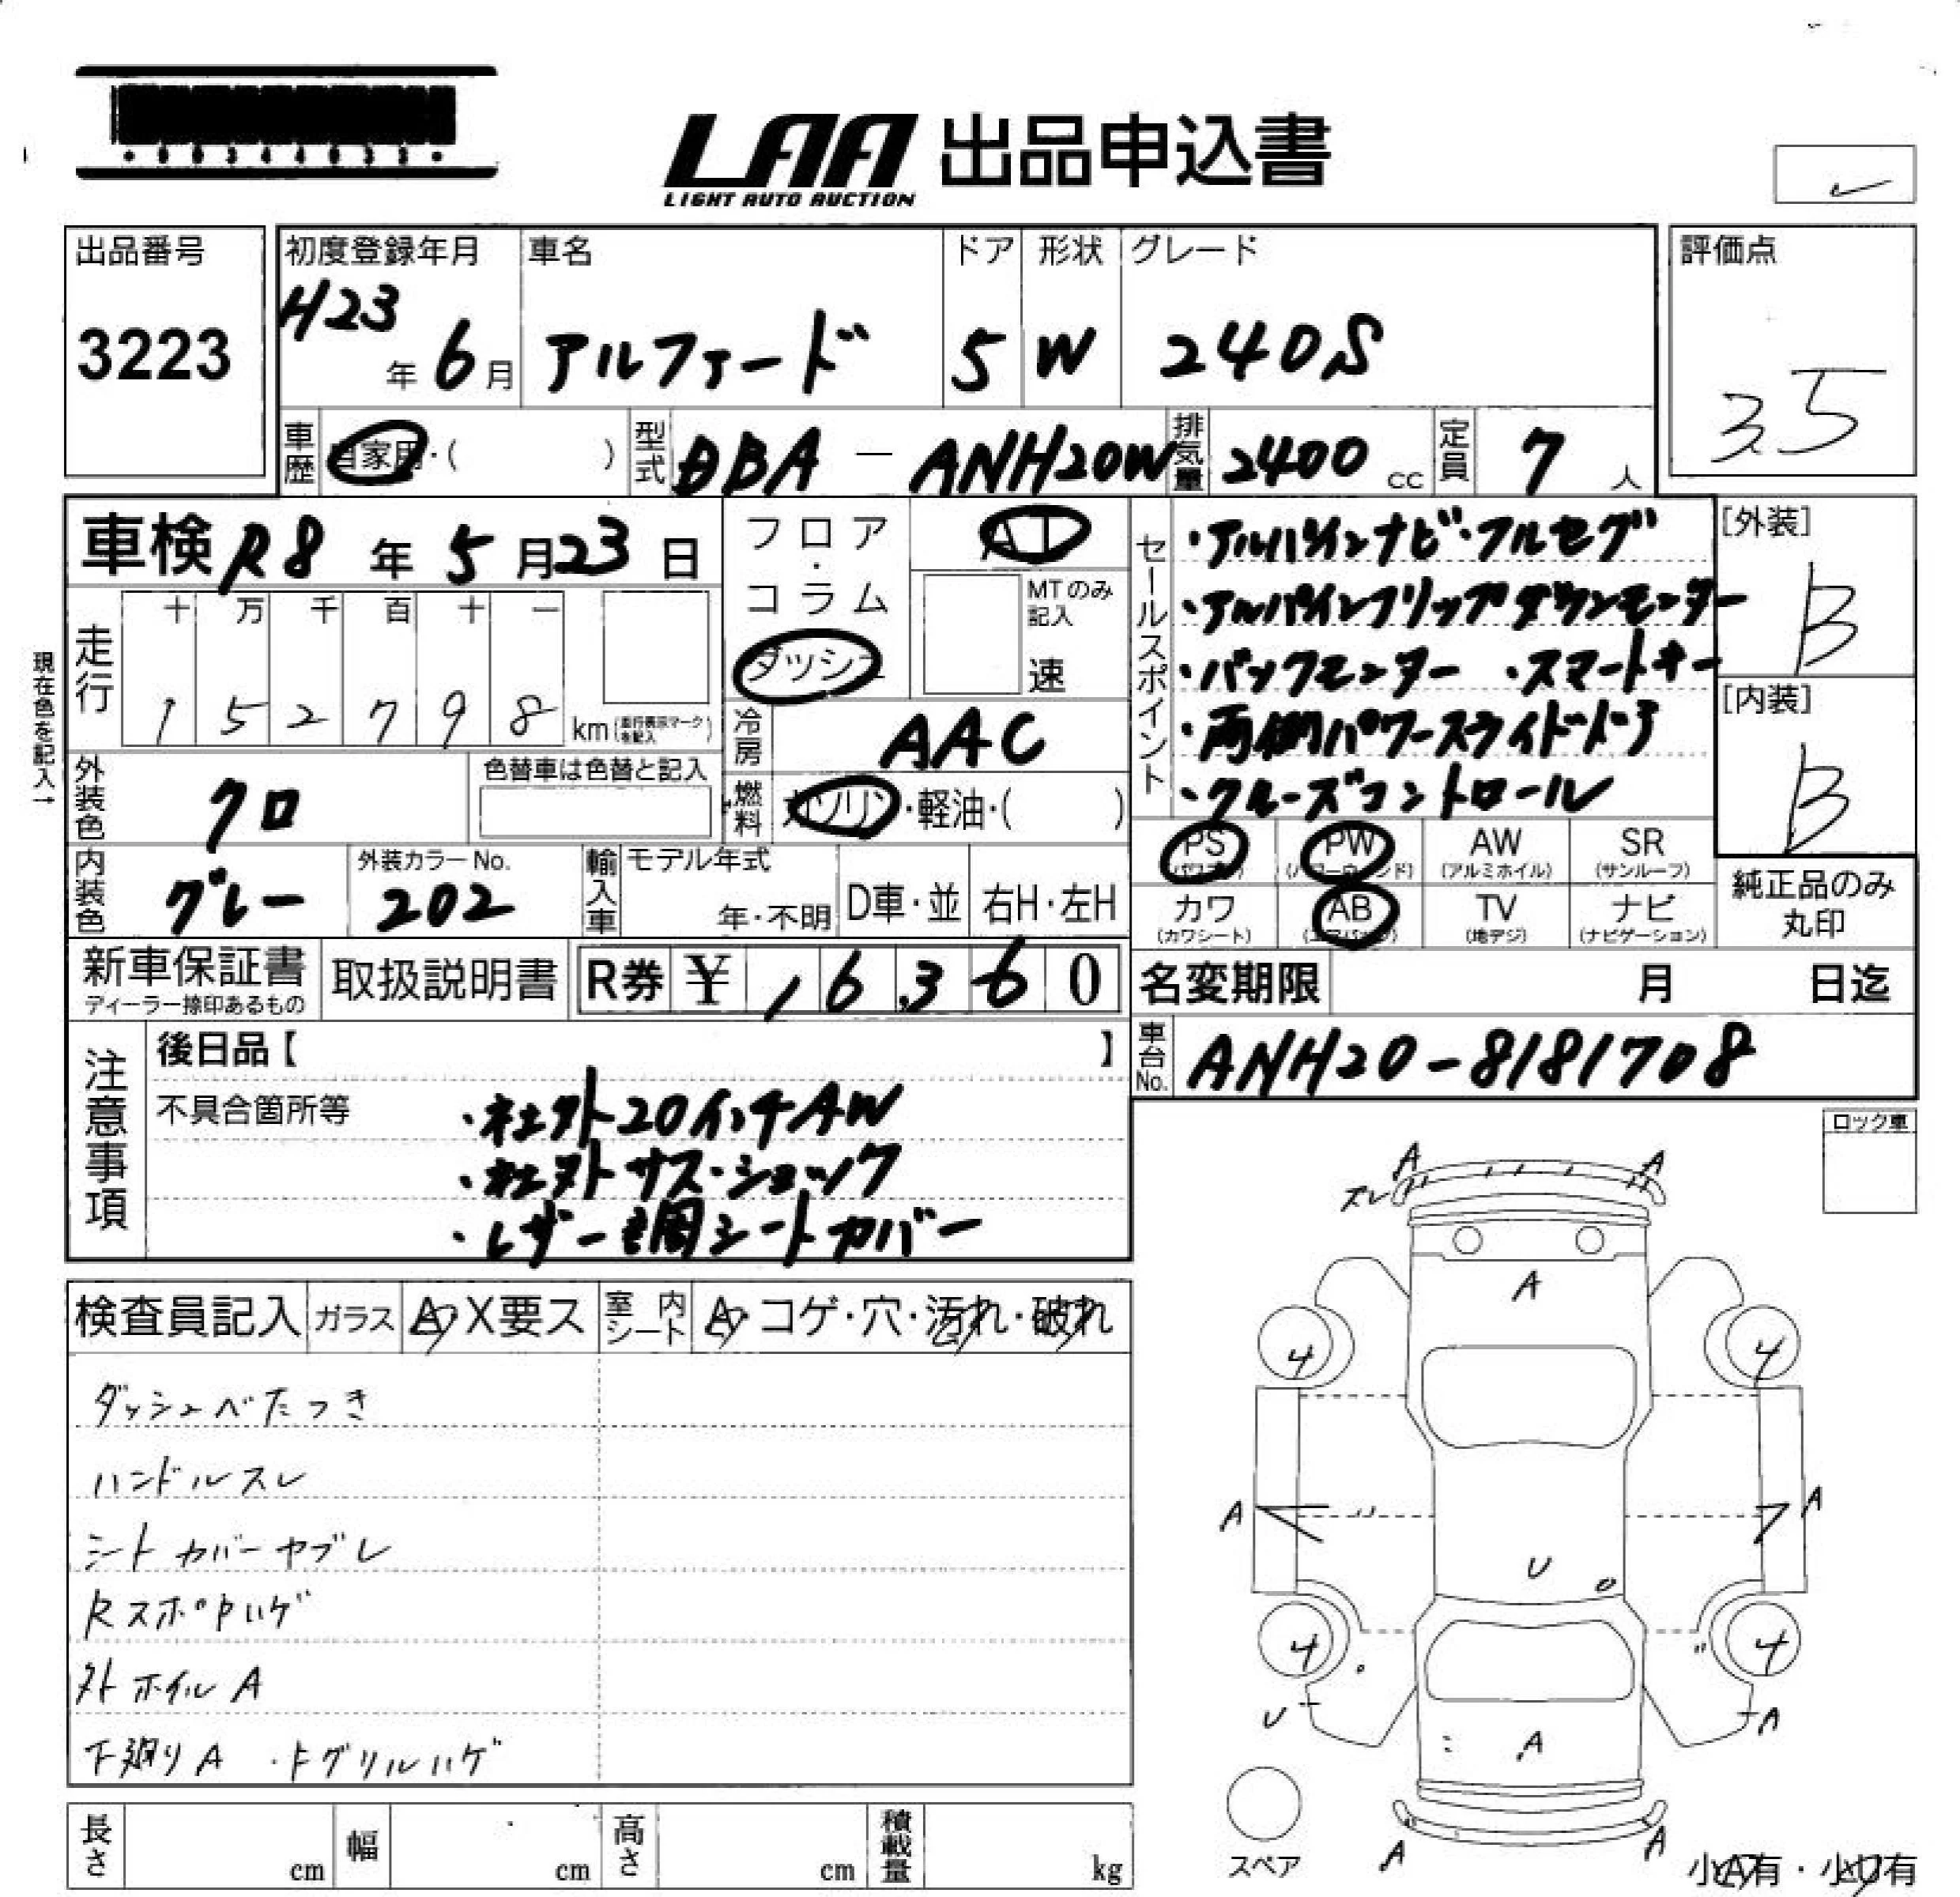 LAA 出品申込書
LIGHT AUTO AUCTION
出品番号
3223
初度登録年月
H23年6月
車名
アルファード
ドア
5
形状
W
グレード
240S
評価点
3.5
車歴 自家用・( )
型式 DBA-ANH20W
排気量 2400cc
定員 7人
車検 R8年5月23日
フロア・コラム ダッシュ
AT
MTのみ記入
速
現在色を記入→
走行
十 万 千 百 十 一
1 5 2 7 9 8 km(走行表示マークを記入)
冷房 AAC
燃料 ガソリン・軽油・( )
外装色 クロ
色替車は色替と記入
内装色 グレー
外装カラーNo.
202
輸入車
モデル年式
年・不明
D車・並
右H・左H
セールスポイント
・アルパインナビ・フルセグ
・アルパインフリップダウンモニター
・バックモニター ・スマートキー
・両側パワースライドドア
・クルーズコントロール
[外装]
B
[内装]
B
PS(パワステ) PW(パワーウィンド) AW(アルミホイル) SR(サンルーフ)
カワ(カワシート) AB(エアバッグ) TV(地デジ) ナビ(ナビゲーション)
純正品のみ
丸印
新車保証書
ディーラー捺印あるもの
取扱説明書
R券 ¥ 16,360
名変期限 月 日迄
車台No. ANH20-8181708
注意事項
後日品【 】
不具合箇所等
・社外20インチAW
・社外サス・ショック
・レザー調シートカバー
検査員記入
ガラス A・X要ス
室内シート A・コゲ・穴・汚れ・破れ
ダッシュべたつき
ハンドルスレ
シートカバーヤブレ
RスポPハゲ
外ホイルA
下廻りA ・Fグリルハゲ
ロック車
A A
ズレ
A
4 4
A A
U
4 4
U A
A
スペア
A A
小A有・小U有
長さ cm
幅 cm
高さ cm
積載量 kg